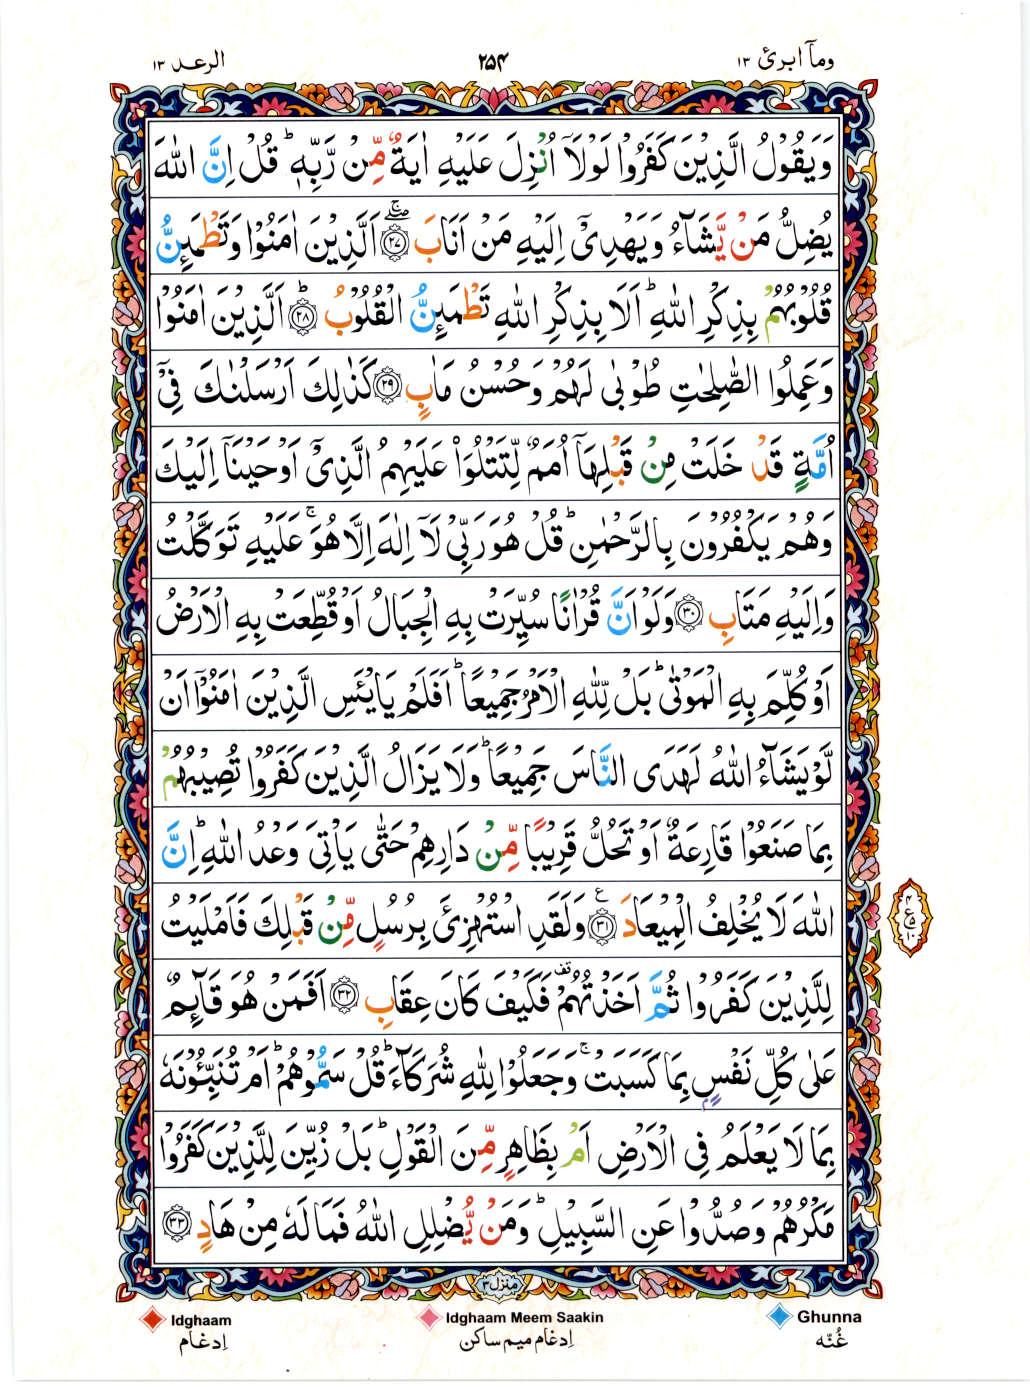 ومآ ابرئ ١٣
٢٥٤
الرعد ١٣
وَيَقُوْلُ الَّذِيْنَ كَفَرُوْا لَوْلَاۤ اُنْزِلَ عَلَيْهِ اٰيَةٌ مِّنْ رَّبِّهٖ ؕ قُلْ اِنَّ اللّٰهَ
يُضِلُّ مَنْ يَّشَآءُ وَيَهْدِيْۤ اِلَيْهِ مَنْ اَنَابَ ۖۚ ﴿٢٧﴾ اَلَّذِيْنَ اٰمَنُوْا وَتَطْمَئِنُّ
قُلُوْبُهُمْ بِذِكْرِ اللّٰهِ ؕ اَلَا بِذِكْرِ اللّٰهِ تَطْمَئِنُّ الْقُلُوْبُ ؕ ﴿٢٨﴾ اَلَّذِيْنَ اٰمَنُوْا
وَعَمِلُوا الصّٰلِحٰتِ طُوْبٰى لَهُمْ وَحُسْنُ مَاٰبٍ ﴿٢٩﴾ كَذٰلِكَ اَرْسَلْنٰكَ فِيْۤ
اُمَّةٍ قَدْ خَلَتْ مِنْ قَبْلِهَاۤ اُمَمٌ لِّتَتْلُوَا۟ عَلَيْهِمُ الَّذِيْۤ اَوْحَيْنَاۤ اِلَيْكَ
وَهُمْ يَكْفُرُوْنَ بِالرَّحْمٰنِ ؕ قُلْ هُوَ رَبِّيْ لَاۤ اِلٰهَ اِلَّا هُوَ ۚ عَلَيْهِ تَوَكَّلْتُ
وَاِلَيْهِ مَتَابِ ﴿٣٠﴾ وَلَوْ اَنَّ قُرْاٰنًا سُيِّرَتْ بِهِ الْجِبَالُ اَوْ قُطِّعَتْ بِهِ الْاَرْضُ
اَوْ كُلِّمَ بِهِ الْمَوْتٰى ؕ بَلْ لِّلّٰهِ الْاَمْرُ جَمِيْعًا ؕ اَفَلَمْ يَايْـَٔسِ الَّذِيْنَ اٰمَنُوْۤا اَنْ
لَّوْ يَشَآءُ اللّٰهُ لَهَدَى النَّاسَ جَمِيْعًا ؕ وَلَا يَزَالُ الَّذِيْنَ كَفَرُوْا تُصِيْبُهُمْ
بِمَا صَنَعُوْا قَارِعَةٌ اَوْ تَحُلُّ قَرِيْبًا مِّنْ دَارِهِمْ حَتّٰى يَاْتِيَ وَعْدُ اللّٰهِ ؕ اِنَّ
اللّٰهَ لَا يُخْلِفُ الْمِيْعَادَ ﴿٣١﴾ ع وَلَقَدِ اسْتُهْزِئَ بِرُسُلٍ مِّنْ قَبْلِكَ فَاَمْلَيْتُ
لِلَّذِيْنَ كَفَرُوْا ثُمَّ اَخَذْتُهُمْ قف فَكَيْفَ كَانَ عِقَابِ ﴿٣٢﴾ اَفَمَنْ هُوَ قَآئِمٌ
عَلٰى كُلِّ نَفْسٍۭ بِمَا كَسَبَتْ ۚ وَجَعَلُوْا لِلّٰهِ شُرَكَآءَ ؕ قُلْ سَمُّوْهُمْ ؕ اَمْ تُنَبِّـُٔوْنَهٗ
بِمَا لَا يَعْلَمُ فِي الْاَرْضِ اَمْ بِظَاهِرٍ مِّنَ الْقَوْلِ ؕ بَلْ زُيِّنَ لِلَّذِيْنَ كَفَرُوْا
مَكْرُهُمْ وَصُدُّوْا عَنِ السَّبِيْلِ ؕ وَمَنْ يُّضْلِلِ اللّٰهُ فَمَا لَهٗ مِنْ هَادٍ ﴿٣٣﴾
منزل ٣
Ghunna
غُنّه
Idghaam Meem Saakin
اِدغام میم ساکن
Idghaam
اِدغام